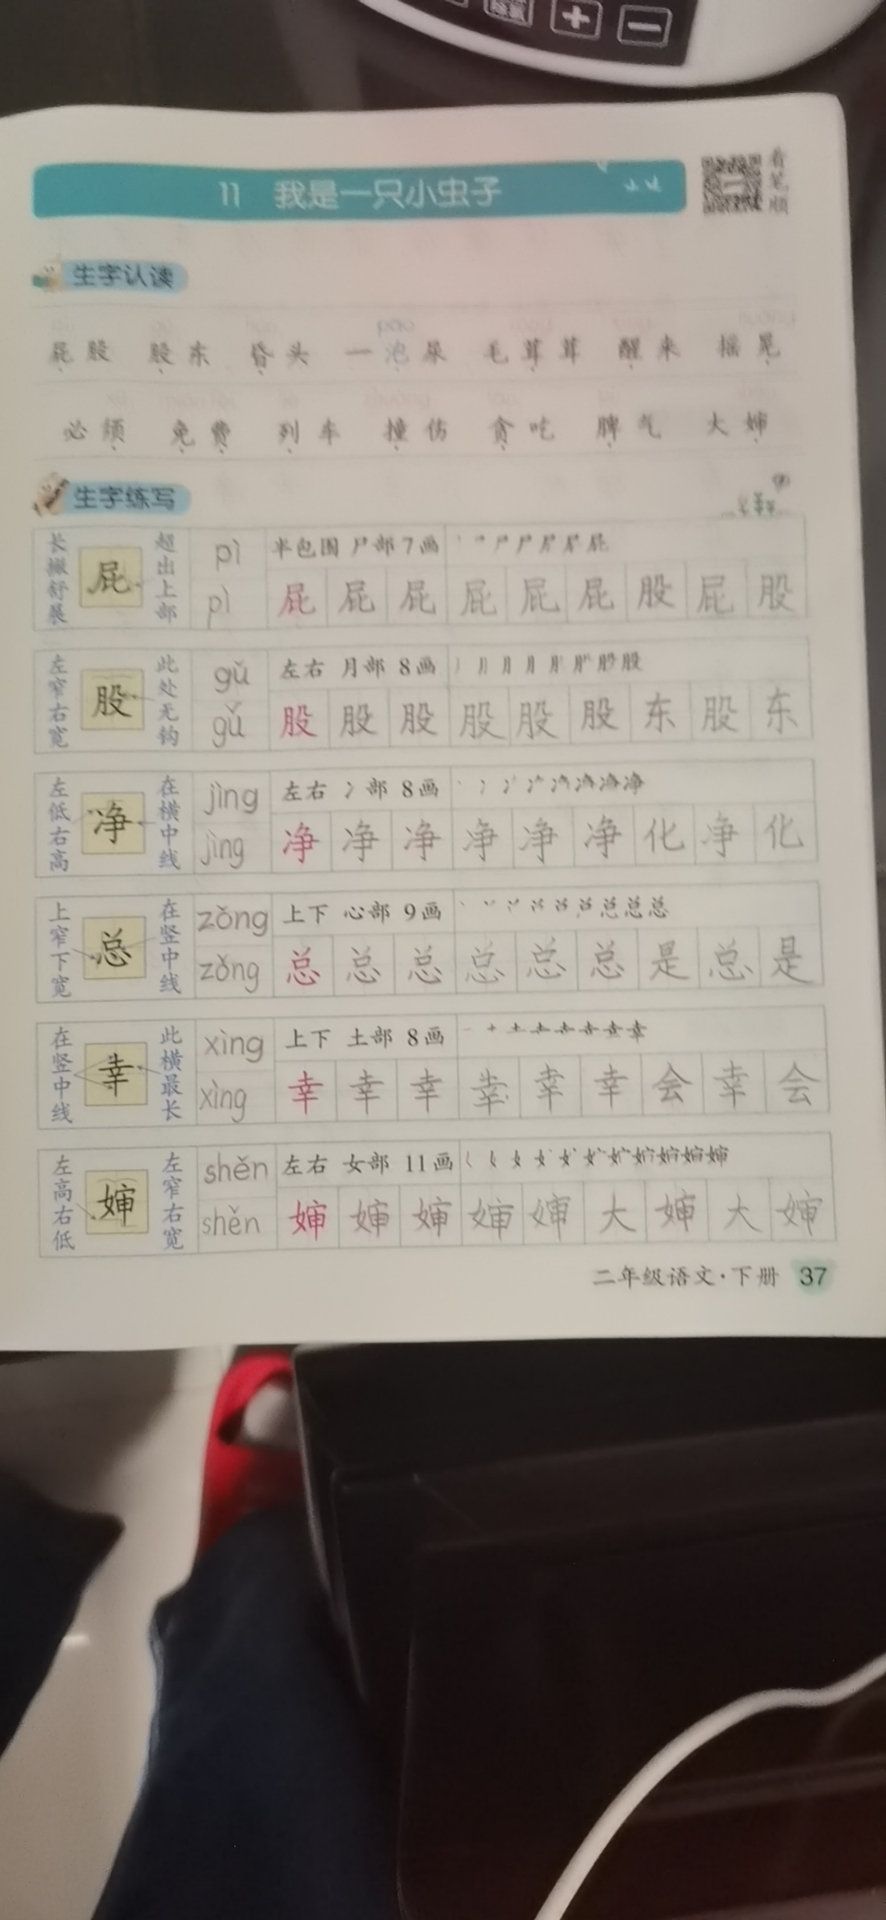 11 我是一只小虫子
看笔顺
生字认读
pāo
屁股 股东 昏头 一泡尿 毛茸茸 醒来 摇晃
必须 免费 列车 撞伤 贪吃 脾气 大婶
生字练写
长撇舒展 屁 超出上部 pì 半包围 尸部 7画
pì 屁 屁 屁 屁 屁 屁 股 屁 股
左窄右宽 股 此处无钩 gǔ 左右 月部 8画
gǔ 股 股 股 股 股 股 东 股 东
左低右高 净 在横中线 jìng 左右 冫部 8画
jìng 净 净 净 净 净 净 化 净 化
上窄下宽 总 在竖中线 zǒng 上下 心部 9画
zǒng 总 总 总 总 总 总 是 总 是
在竖中线 幸 此横最长 xìng 上下 土部 8画
xìng 幸 幸 幸 幸 幸 幸 会 幸 会
左高右低 婶 左窄右宽 shěn 左右 女部 11画
shěn 婶 婶 婶 婶 婶 大 婶 大 婶
二年级语文·下册 37